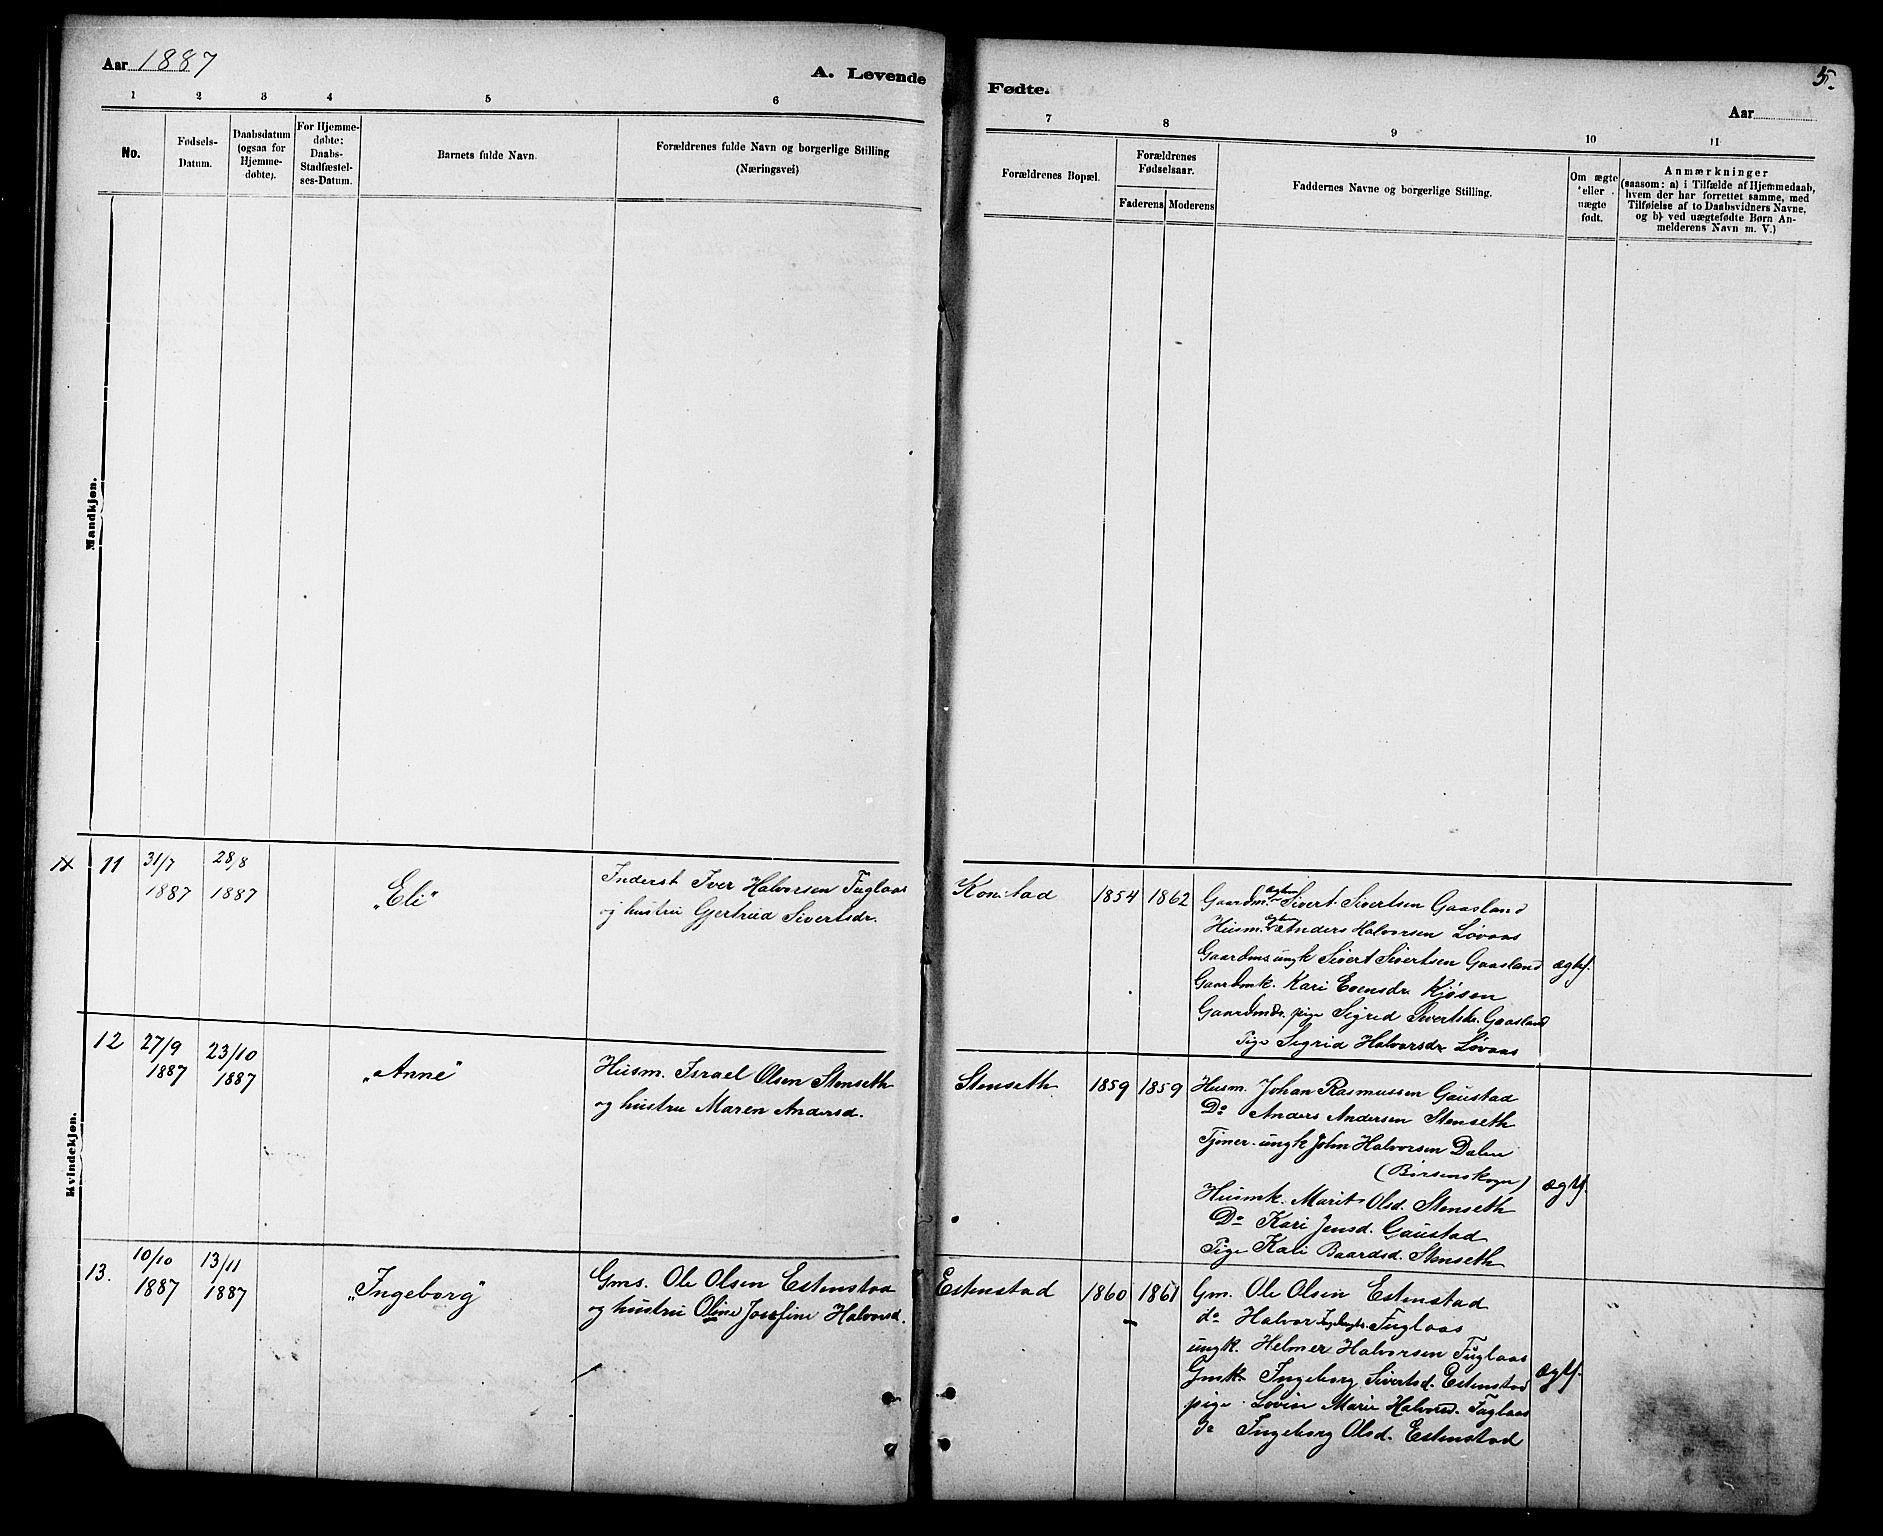 Aar 1887
A. Levende
Fødte.
5.
Aar
1 2 3 4 5 6
7 8 9 10 11
No.
Fødsels-
Datum.
Daabsdatum
(ogsaa for
Hjemme-
døbte).
For Hjemme-
døbte:
Daabs-
Stadfæstel-
ses-Datum.
Barnets fulde Navn.
Forældrenes fulde Navn og borgerlige Stilling
(Næringsvei)
Forældrenes Bopæl.
Forældrenes
Fødselsaar.
Faderens Moderens
Faddernes Navne og borgerlige Stilling.
Om ægte
eller
uægte
født.
Anmærkninger
(saasom: a) i Tilfælde af Hjemmedaab,
hvem der har forrettet samme, med
Tilføielse af to Daabsvidners Navne,
og b) ved uægtefødte Børn An-
melderens Navn m. V.)
Mandkjøn.
Kvindekjøn.
11
31/7
1887
28/8
1887
"Eli"
Inderst Iver Halvorsen Fuglaas
og hustru Gjertrud Sivertsdr.
Konstad
1854
1862
Gaardm. Sivert Sivertsen Gaasland
Husm. Anders Halvorsen Løvaas
Gaardms. ungk Sivert Sivertsen Gaasland
Gaardmk. Kari Evensdr. Kjøsen
Gaardmdr. pige Sigrid Sivertsdr. Gaasland
Pige Sigrid Halvorsdr Løvaas
ægtf.
12
27/9
1887
23/10
1887
"Anne"
Husm. Israel Olsen Stenseth
og hustru Maren Andersd.
Stenseth
1859
1859
Husm. Johan Rasmussen Gaustad
Do Anders Andersen Stenseth
Tjener. ungk John Halvorsen Dalen
(Børsenskogn)
Husmk. Marit Olsd. Stenseth
Do Kari Jensd. Gaustad
Pige Kari Baardsd. Stenseth
ægtf.
13.
10/10
1887
13/11
1887
"Ingeborg"
Gms. Ole Olsen Estenstad
og hustru Oline Josefine Halvorsd.
Estenstad
1860
1861
Gm. Ole Olsen Estenstad
do Halvor Fuglaas
ungk. Helmer Halvorsen Fuglaas
Gmk Ingeborg Sivertsd. Estenstad
pige Lovise Marie Halvorsd. Fuglaas
do Ingeborg Olsd. Estenstad
ægtf.